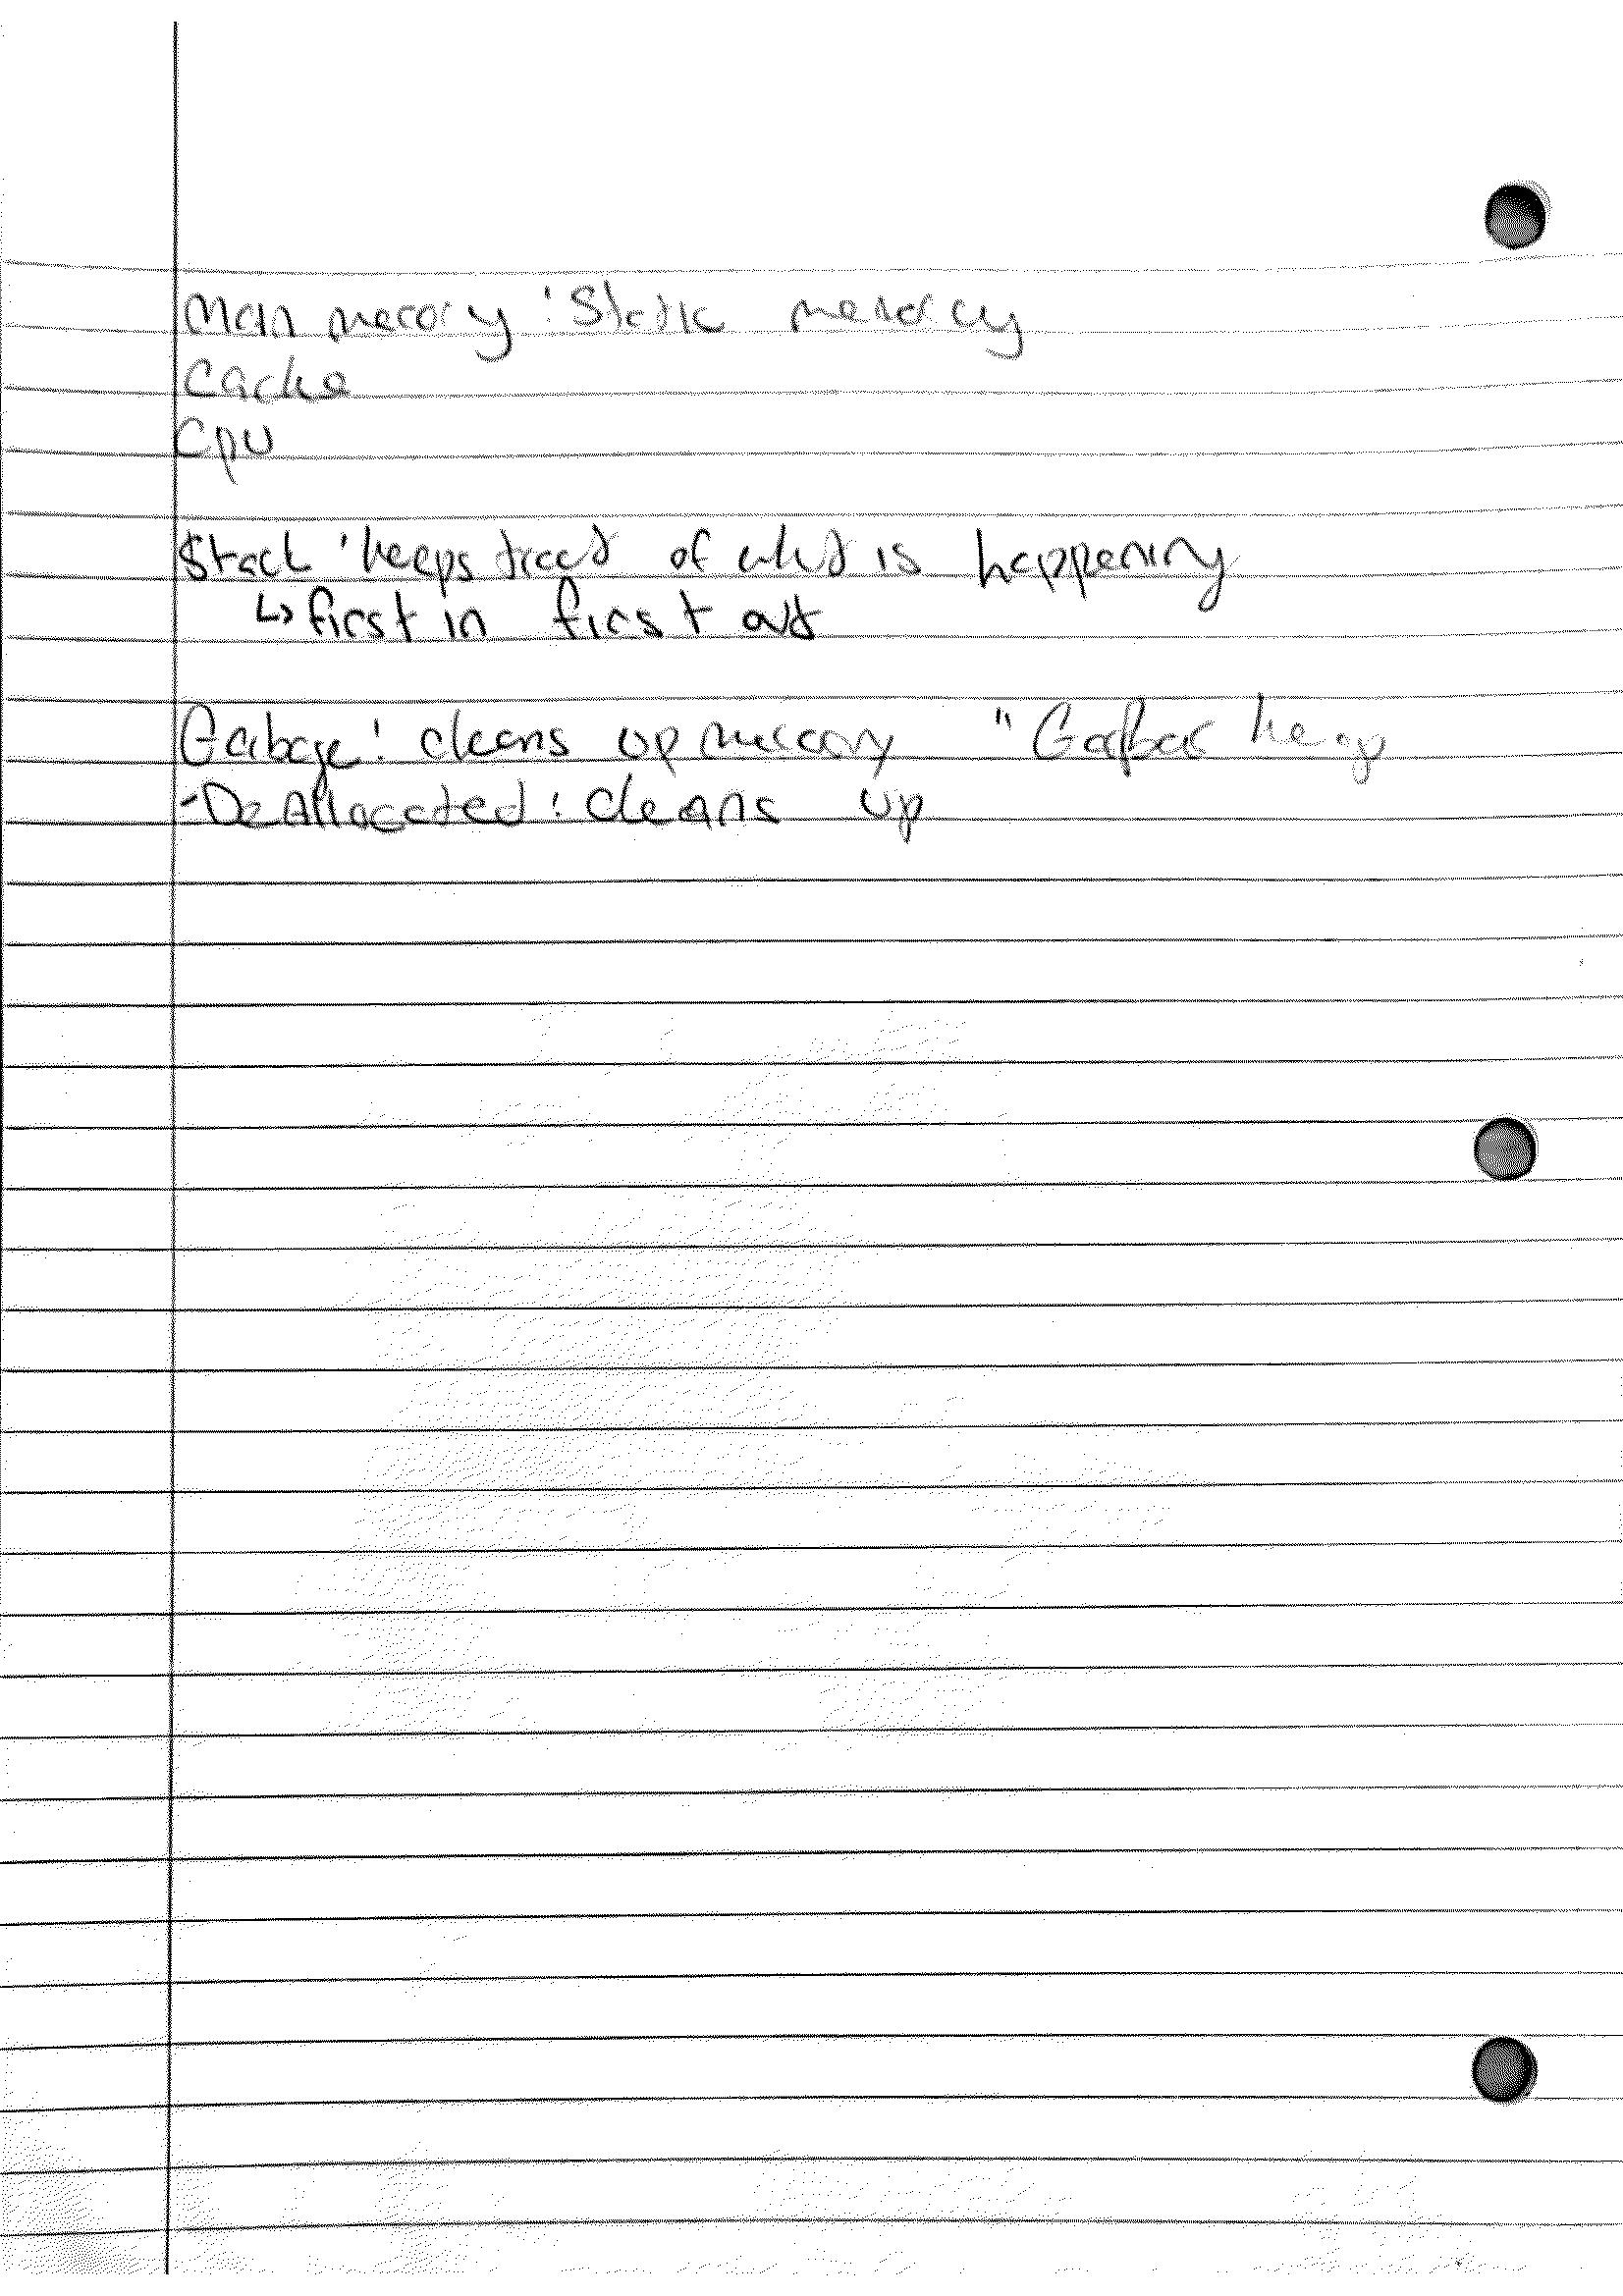 Main memory : Static memory
Cache
Cpu
Stack : keeps track of what is happening
↳ first in first out
Garbage : cleans up memory " heap
- DeAllocated : cleans up